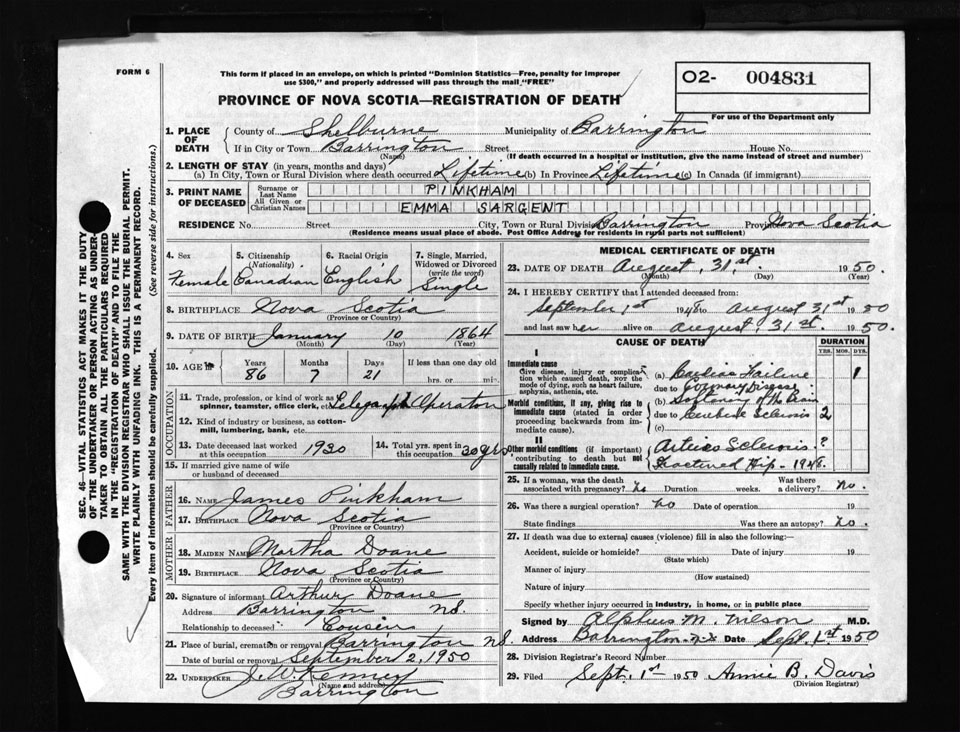 FORM 6
This form if placed in an envelope, on which is printed "Dominion Statistics—Free, penalty for improper
use $300," and properly addressed will pass through the mail "FREE"
PROVINCE OF NOVA SCOTIA—REGISTRATION OF DEATH
O2- 004831
For use of the Department only
1. PLACE OF DEATH
County of Shelburne Municipality of Barrington
If in City or Town Barrington Street House No.
(Name) (If death occurred in a hospital or institution, give the name instead of street and number)
2. LENGTH OF STAY (in years, months and days)
(a) In City, Town or Rural Division where death occurred Lifetime (b) In Province Lifetime (c) In Canada (if immigrant)
3. PRINT NAME OF DECEASED
Surname or Last Name PINKHAM
All Given or Christian Names EMMA SARGENT
RESIDENCE No. Street City, Town or Rural Division Barrington Province Nova Scotia
(Residence means usual place of abode. Post Office Address for residents in rural parts not sufficient)
4. Sex Female
5. Citizenship (Nationality) Canadian
6. Racial Origin English
7. Single, Married, Widowed or Divorced (write the word) Single
8. BIRTHPLACE Nova Scotia
(Province or Country)
9. DATE OF BIRTH January 10 1864
(Month) (Day) (Year)
10. AGE Years 86 Months 7 Days 21 If less than one day old
hrs. or min.
OCCUPATION
11. Trade, profession, or kind of work as spinner, teamster, office clerk, etc. Telegraph Operator
12. Kind of industry or business, as cotton-mill, lumbering, bank, etc.
13. Date deceased last worked at this occupation 1930
14. Total yrs. spent in this occupation 30 yrs
15. If married give name of wife or husband of deceased
FATHER
16. NAME James Pinkham
17. BIRTHPLACE Nova Scotia
(Province or Country)
MOTHER
18. MAIDEN NAME Martha Doane
19. BIRTHPLACE Nova Scotia
(Province or Country)
20. Signature of informant Arthur Doane
Address Barrington NS.
Relationship to deceased Cousin
21. Place of burial, cremation or removal Barrington NS.
Date of burial or removal September 2, 1950
22. UNDERTAKER J. W. Kenney
(Name and address)
Barrington
MEDICAL CERTIFICATE OF DEATH
23. DATE OF DEATH August, 31st. 1950.
(Month) (Day) (Year)
24. I HEREBY CERTIFY that I attended deceased from:
September 1st 1948 to August 31st 1950
and last saw her alive on August, 31st. 1950.
CAUSE OF DEATH
DURATION
YRS. MOS. DYS.
I
Immediate cause
Give disease, injury or complication which caused death, NOT the mode of dying, such as heart failure, asphyxia, asthenia, etc.
(a) Cardiac Failure 1
due to Coronary Disease
Morbid conditions, if any, giving rise to immediate cause (stated in order proceeding backwards from immediate cause).
(b) Softening of the Brain
due to Sclerosis 2
(c)
II
Other morbid conditions (if important) contributing to death but not causally related to immediate cause.
Sclerosis ?
Fractured Hip - 1948.
25. If a woman, was the death associated with pregnancy? No Duration weeks. Was there a delivery? No.
26. Was there a surgical operation? No Date of operation 19
State findings Was there an autopsy? No.
27. If death was due to external causes (violence) fill in also the following:—
Accident, suicide or homicide? Date of injury 19
(State which)
Manner of injury
(How sustained)
Nature of injury
Specify whether injury occurred in industry, in home, or in public place
Signed by Alpheus M. Wilson M.D.
Address Barrington N.S. Date Sept. 1st 1950
28. Division Registrar's Record Number
29. Filed Sept. 1st 1950 Annie B. Davis
(Division Registrar)
SEC. 46—VITAL STATISTICS ACT MAKES IT THE DUTY
OF THE UNDERTAKER OR PERSON ACTING AS UNDER-
TAKER TO OBTAIN ALL THE PARTICULARS REQUIRED
IN THE "REGISTRATION OF DEATH" AND TO FILE THE
SAME WITH THE DIVISION REGISTRAR WHO SHALL ISSUE THE BURIAL PERMIT.
WRITE PLAINLY WITH UNFADING INK. THIS IS A PERMANENT RECORD.
Every item of information should be carefully supplied. (See reverse side for instructions.)